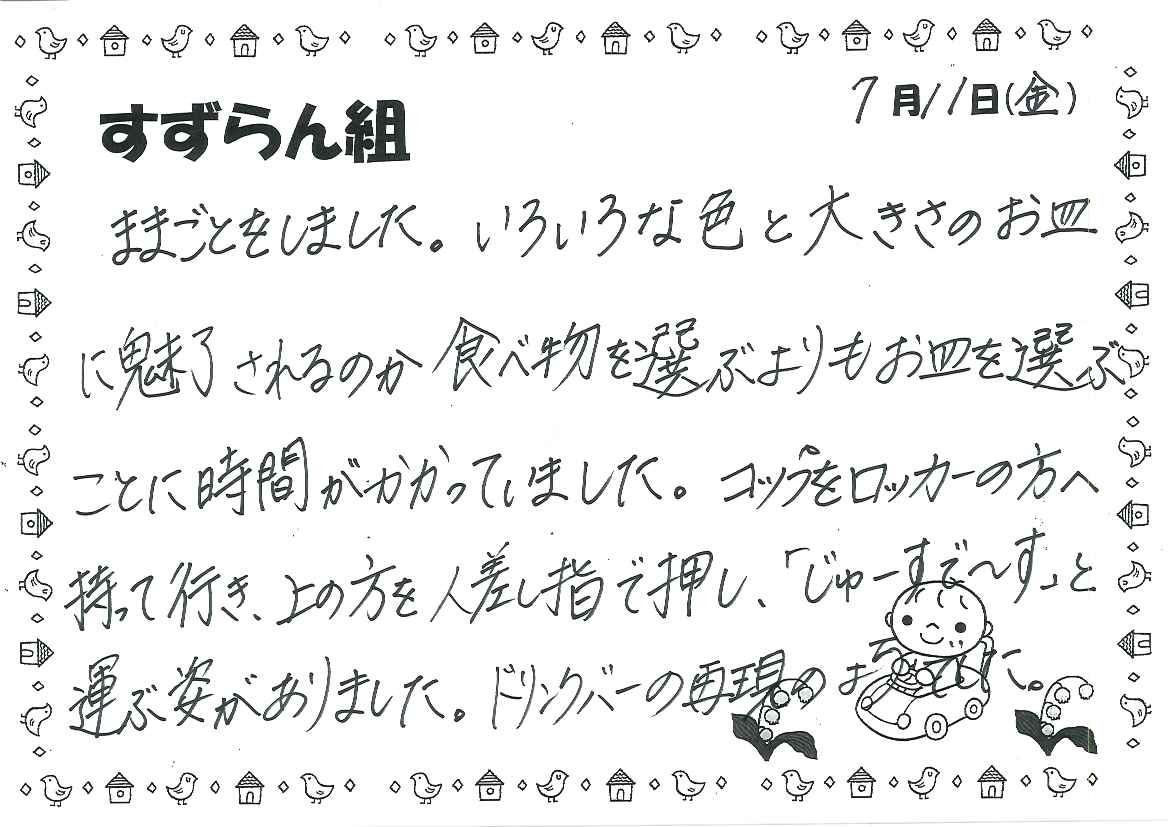 7月11日(金)
すずらん組
ままごとをしました。いろいろな色と大きさのお皿
に魅了されるのか食べ物を選ぶよりもお皿を選ぶ
ことに時間がかかっていました。コップをロッカーの方へ
持って行き、上の方を人差し指で押し、「じゅーすで〜す」と
運ぶ姿がありました。ドリンクバーの再現のようでした。